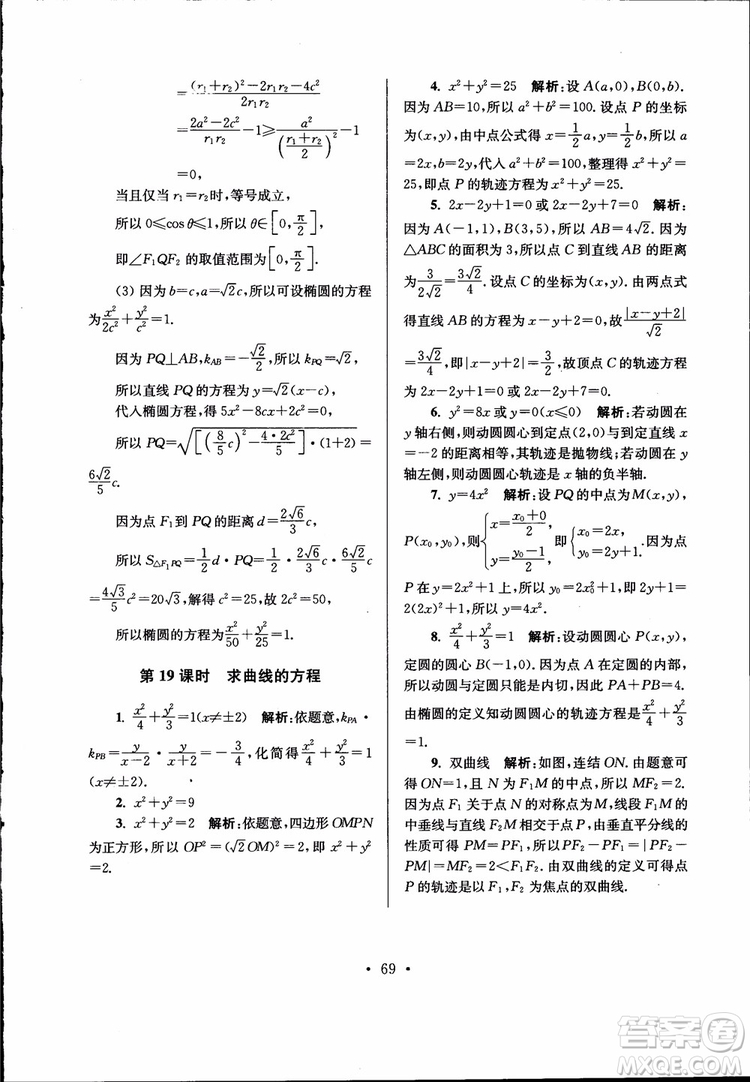 =\frac{(r₁+r₂)²-2r₁r₂-4c²}{2r₁r₂}
=\frac{2a²-2c²}{r₁r₂}-1≥\frac{a²}{(\frac{r₁+r₂}{2})²}-1
=0,
当且仅当 r₁=r₂时,等号成立,
所以 0≤cos θ≤1,所以 θ∈[0,\frac{π}{2}],
即∠F₁QF₂ 的取值范围为[0,\frac{π}{2}].
(3) 因为 b=c,a=√2c,所以可设椭圆的方程
为\frac{x²}{2c²}+\frac{y²}{c²}=1.
因为 PQ⊥AB,k_{AB}=-\frac{√2}{2},所以 k_{PQ}=√2,
所以直线 PQ 的方程为 y=√2(x-c),
代入椭圆方程,得 5x²-8cx+2c²=0,
所以 PQ=√{[(\frac{8}{5}c)²-\frac{4·2c²}{5}]·(1+2)}=
\frac{6√2}{5}c.
因为点 F₁ 到 PQ 的距离 d=\frac{2√6}{3}c,
所以 S_{△F₁PQ}=\frac{1}{2}d·PQ=\frac{1}{2}·\frac{2√6}{3}c·\frac{6√2}{5}c=
\frac{4√3}{5}c²=20√3,解得 c²=25,故 2c²=50,
所以椭圆的方程为\frac{x²}{50}+\frac{y²}{25}=1.
第 19 课时 求曲线的方程
1. \frac{x²}{4}+\frac{y²}{3}=1(x≠±2) 解析:依题意,k_{PA}·
k_{PB}=\frac{y}{x-2}·\frac{y}{x+2}=-\frac{3}{4},化简得\frac{x²}{4}+\frac{y²}{3}=1
(x≠±2).
2. x²+y²=9
3. x²+y²=2 解析:依题意,四边形 OMPN
为正方形,所以 OP²=(√2OM)²=2,即 x²+y²
=2.
4. x²+y²=25 解析:设 A(a,0),B(0,b).
因为 AB=10,所以 a²+b²=100. 设点 P 的坐标
为(x,y),由中点公式得 x=\frac{1}{2}a,y=\frac{1}{2}b,所以 a
=2x,b=2y,代入 a²+b²=100,整理得 x²+y²=
25,即点 P 的轨迹方程为 x²+y²=25.
5. 2x-2y+1=0 或 2x-2y+7=0 解析:
因为 A(-1,1),B(3,5),所以 AB=4√2. 因为
△ABC 的面积为 3,所以点 C 到直线 AB 的距离
为\frac{3}{2√2}=\frac{3√2}{4}. 设点 C 的坐标为(x,y). 由两点式
得直线 AB 的方程为 x-y+2=0,故\frac{|x-y+2|}{√2}
=\frac{3√2}{4},即|x-y+2|=\frac{3}{2},故顶点 C 的轨迹方程
为 2x-2y+1=0 或 2x-2y+7=0.
6. y²=8x 或 y=0(x≤0) 解析:若动圆在
y 轴右侧,则动圆圆心到定点(2,0)与到定直线 x
=-2 的距离相等,其轨迹是抛物线;若动圆在 y
轴左侧,则动圆圆心轨迹是 x 轴的负半轴.
7. y=4x² 解析:设 PQ 的中点为 M(x,y),
P(x₀,y₀),则{x=\frac{x₀+0}{2}, y=\frac{y₀-1}{2}, 即{x₀=2x, y₀=2y+1. 因为点
P 在 y=2x²+1 上,所以 y₀=2x₀²+1,所以 2y+1=
2(2x)²+1,所以 y=4x².
8. \frac{x²}{4}+\frac{y²}{3}=1 解析:设动圆圆心 P(x,y),
定圆的圆心 B(-1,0). 因为点 A 在定圆的内部,
所以动圆与定圆只能是内切,因此 PA+PB=4.
由椭圆的定义知动圆圆心的轨迹方程为\frac{x²}{4}+\frac{y²}{3}
=1.
9. 双曲线 解析:如图,连结 ON. 由题意可
得 ON=1,且 N 为 F₁M 的中点,所以 MF₂=2.
因为点 F₁ 关于点 N 的对称点为 M,线段 F₁M 的
中垂线与直线 F₂M 相交于点 P,由垂直平分线的
性质可得 PM=PF₁,所以|PF₂-PF₁|=|PF₂-
PM|=MF₂=2<F₁F₂. 由双曲线的定义可得点
P 的轨迹是以 F₁,F₂ 为焦点的双曲线.
· 69 ·
答案圈
MXQE.COM